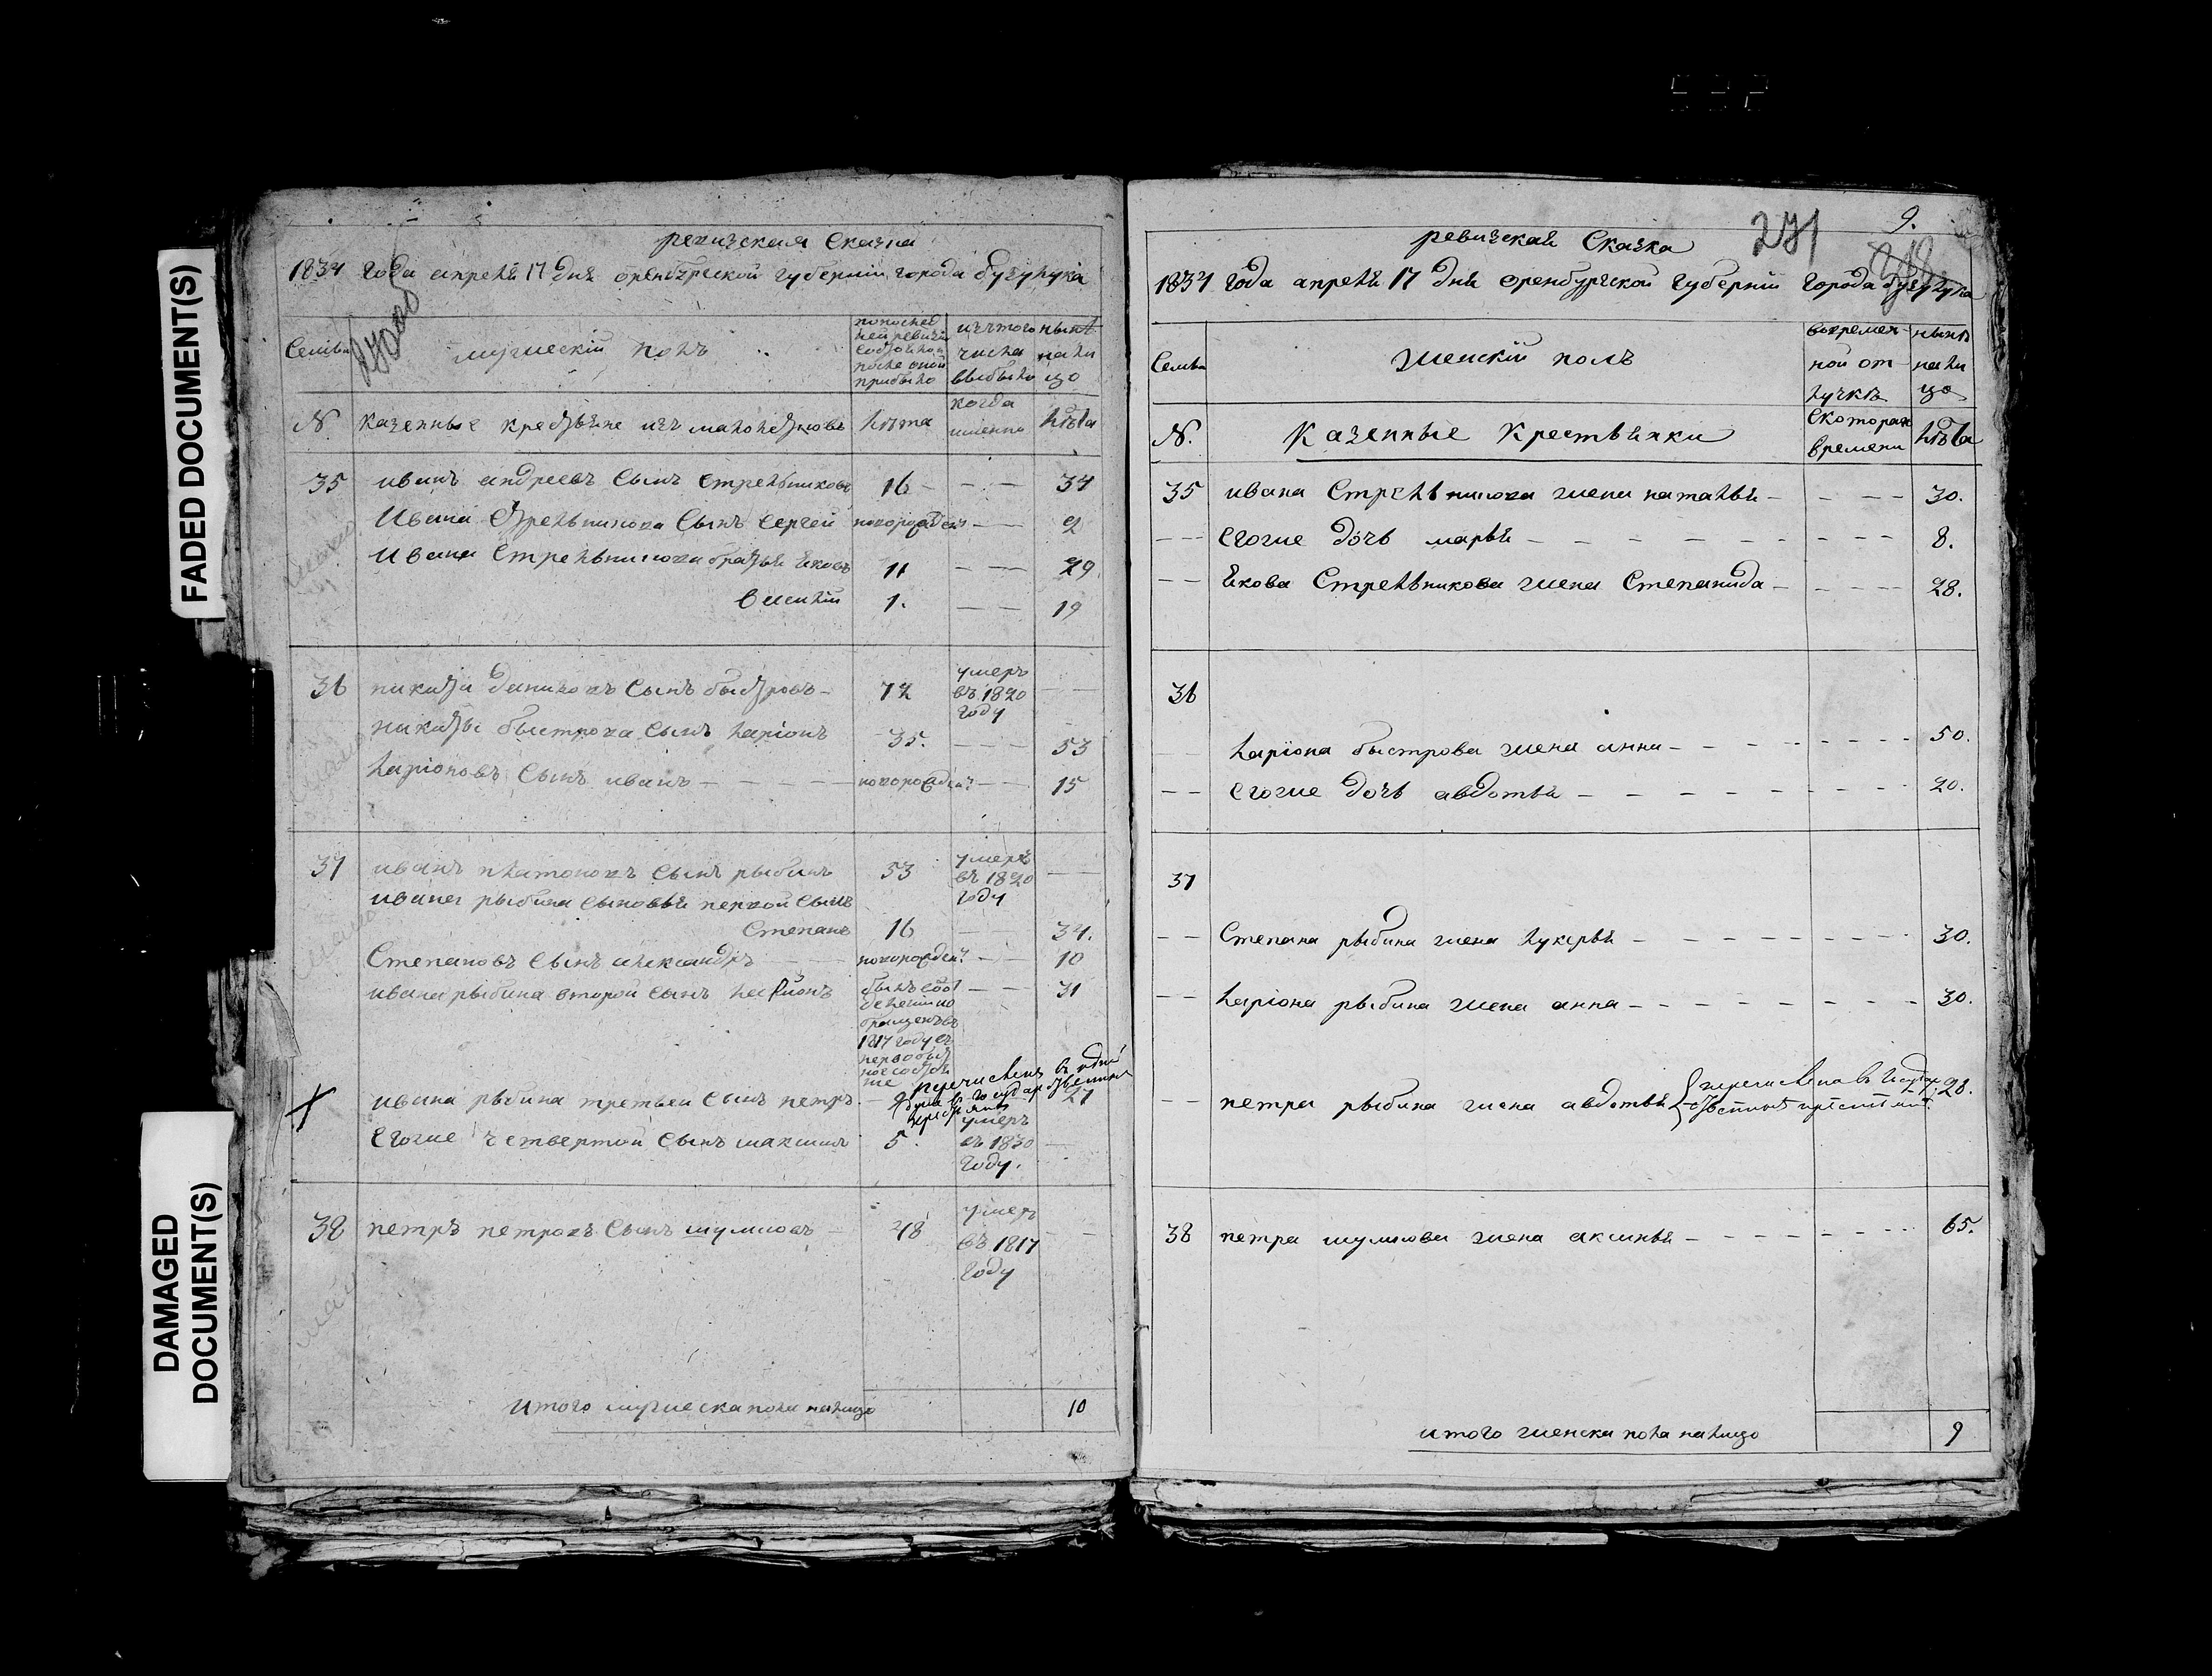 FADED DOCUMENT(S)
DAMAGED
DOCUMENT(S)
ревизская Сказка
1834 года апреля 17 дня оренбургской губернии города бузулука
Семьи
мужескій полъ
попослед
ней ревизіи
состояло и
после оной
прибыло
изътого
числа
выбыло
ныне
на ли
цо
№
казенные крестьяне изъ малолетковъ
лѣта
когда
именно
лѣта
35 иванъ андреевъ Сынъ Стрельниковъ 16 - - - 34
Ивана Стрельникова Сынъ Сергей новорожденъ - - 9
Ивана Стрельникова братья яковъ 11 - - 29
василій 1. - - 19
36 никита даниловъ Сынъ быстровъ - 72 умеръ въ 1820 году - -
никиты быстрова Сынъ ларіонъ 35. - - - 53
ларіоновъ Сынъ иванъ - - - - новорожденъ - - 15
37 иванъ платоновъ Сынъ рыбинъ 53 умеръ въ 1820 году - -
ивана рыбина Сыновья первой Сынъ
Степанъ 16 - - 34.
Степановъ Сынъ александръ - - новорожден. - - 10
ивана рыбина второй Сынъ ларионъ - - 31
1817 году
ивана рыбина третьей Сынъ петръ - 9 27
перечисленъ в
крестьяне
егоже четвертой Сынъ максимъ 5. умеръ въ 1830 году. -
38 петръ петровъ Сынъ шумновъ - 48 умеръ въ 1817 году - -
итого мужеска пола налицо 10
9.
271
ревизская Сказка
1834 года апреля 17 дня оренбургской губерніи города бузулука
Семьи
женскій полъ
вовремен-
ной от-
лучкѣ
нынѣ
на ли
цо
№.
Казенные Крестьянки
Скотораго
времени
лѣта
35 ивана Стрельникова жена наталья - - - - 30.
- - егоже дочь марья - - - - - - - - - 8.
- - якова Стрельникова жена Степанида - - - - - 28.
36
ларіона быстрова жена анна - - - - - - - - - 50.
- - егоже дочь авдотья - - - - - - - - - 20.
37
- - Степана рыбина жена лукерья - - - - - - - - 30.
- - ларіона рыбина жена анна - - - - - - - - 30.
- - петра рыбина жена авдотья перечислена в 28.
38 петра шумнова жена аксинья - - - - - - - - - 65.
итого женска пола налицо 9